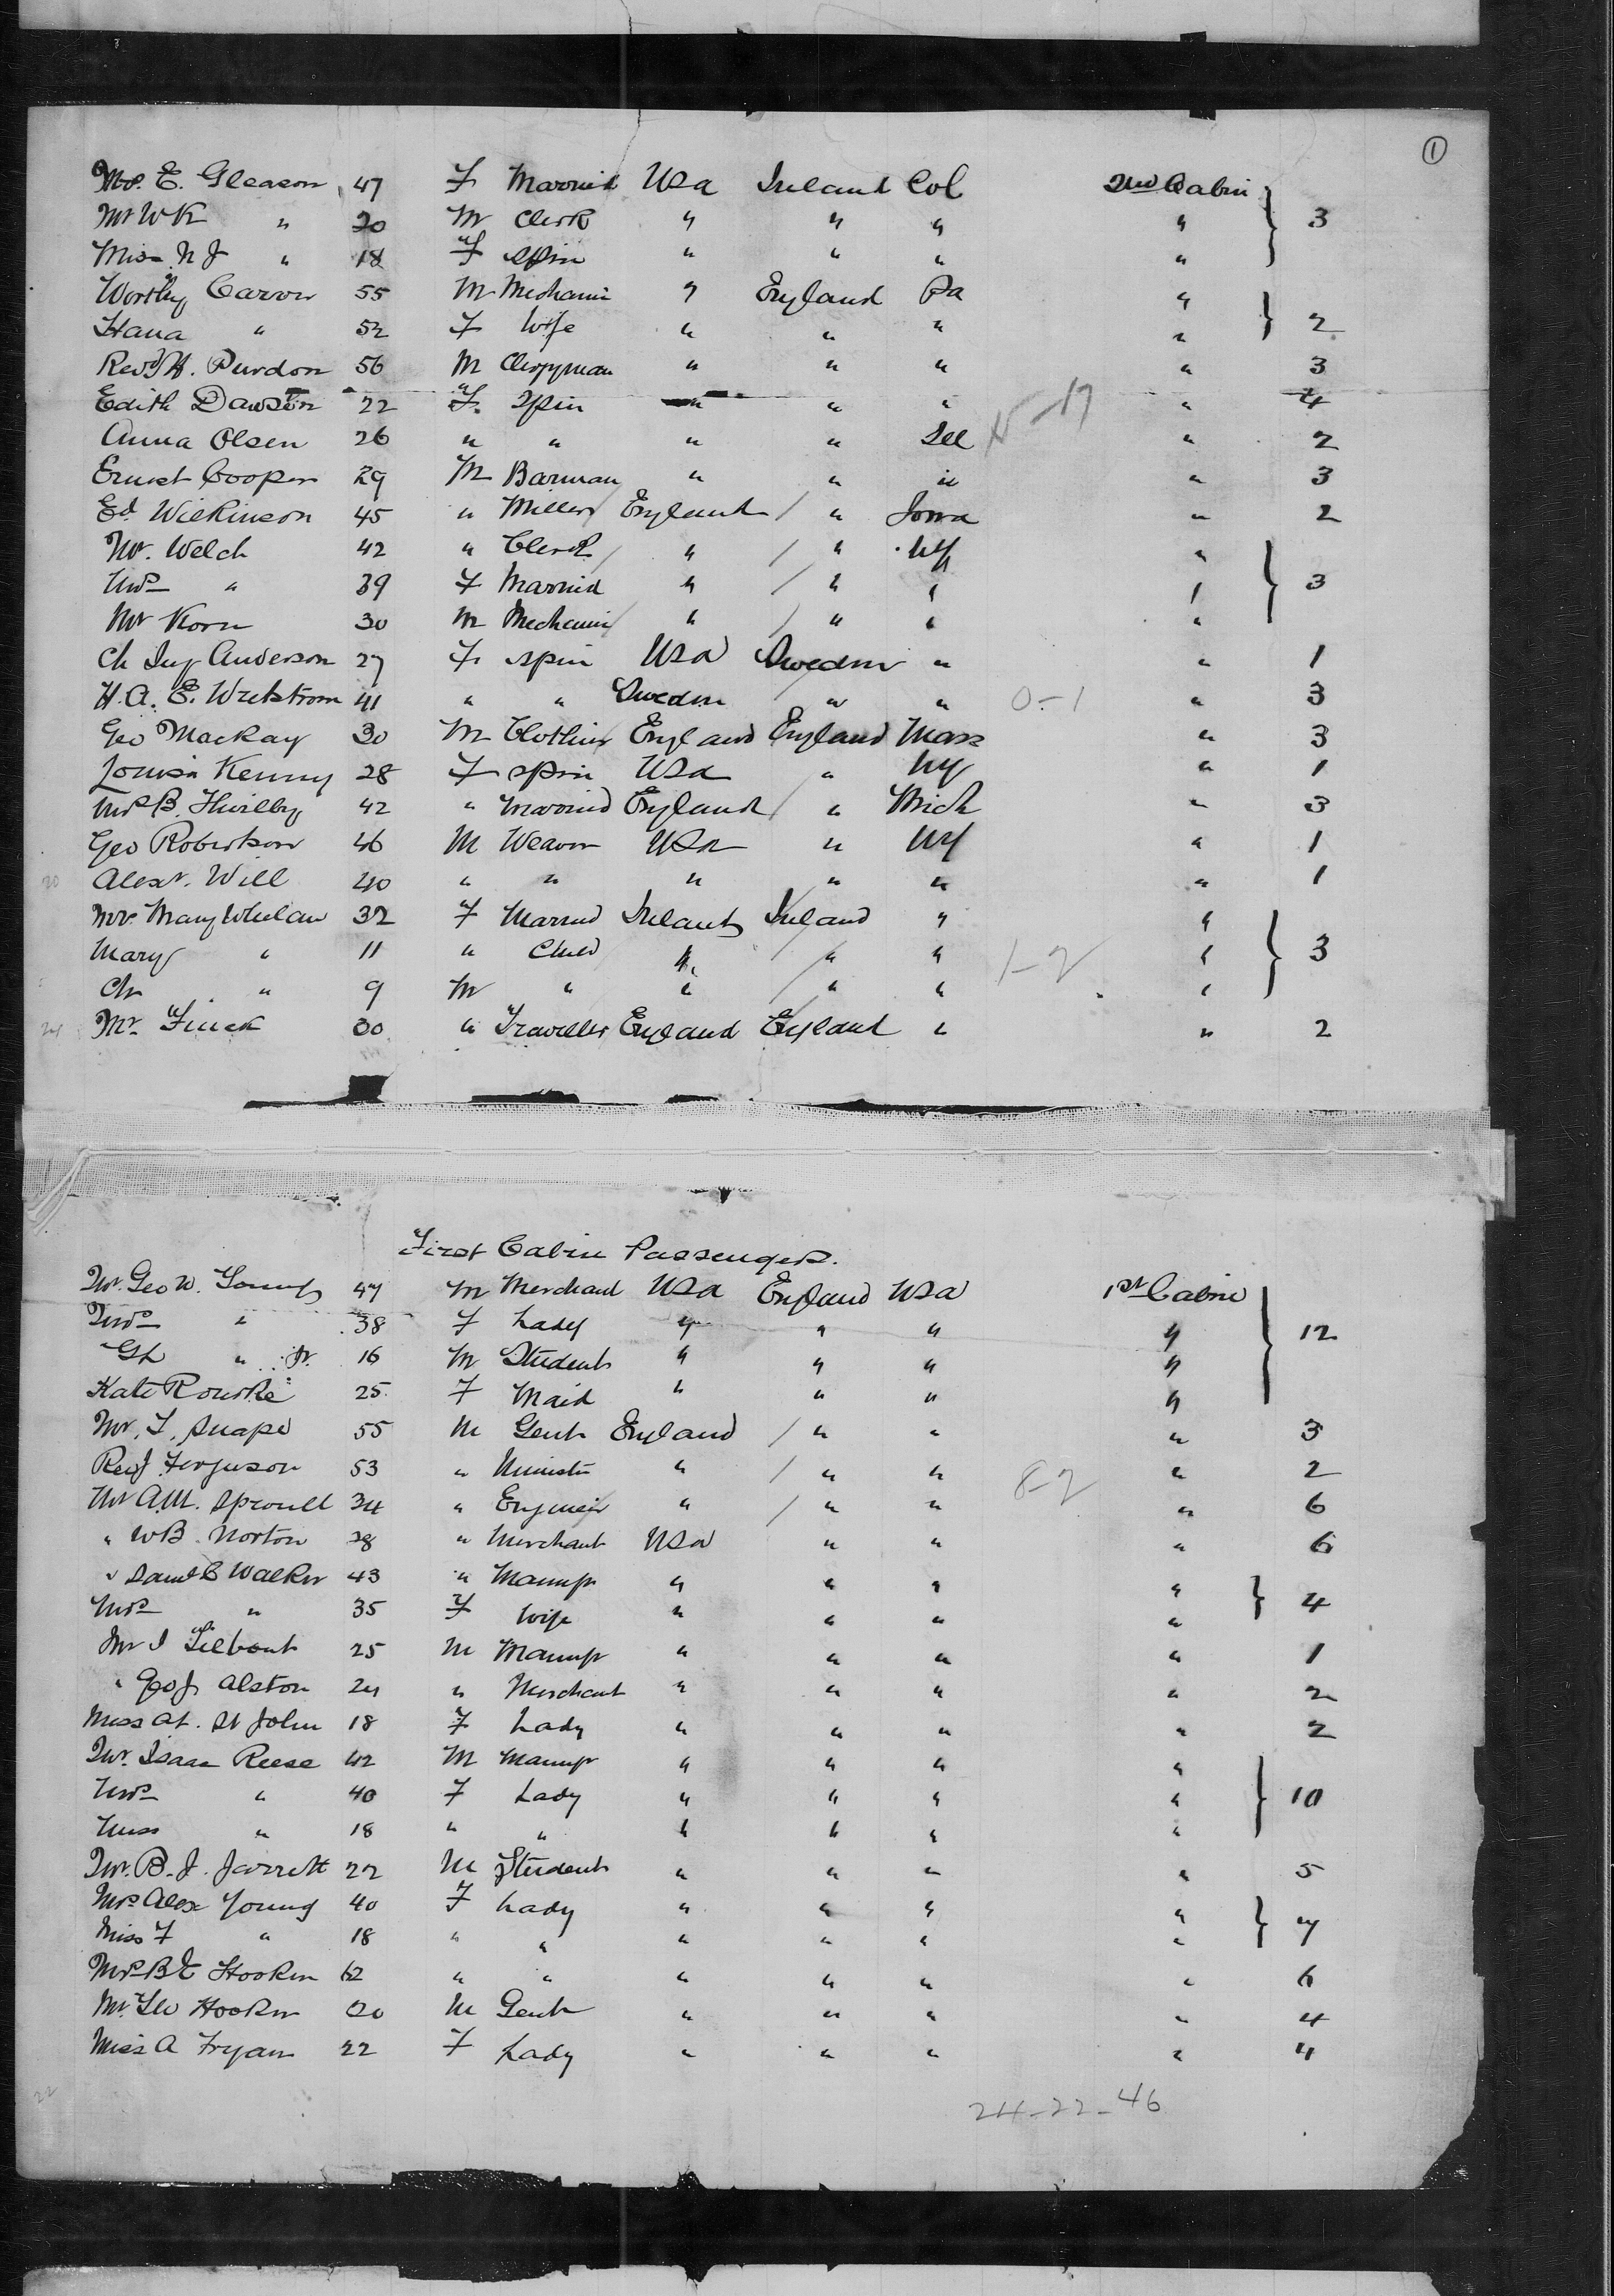 1
Mrs. E. Gleason 47 F Married USa Ireland Col 2nd Cabin
Mr WK " 20 M Clerk " " " " 3
Miss N J " 18 F Spin " " " "
Worthy Carow 55 M Mechanic " England Pa "
Hana " 52 F Wife " " " " 2
Revd H. Purdon 56 M Clergyman " " " " 3
Edith Dawson 22 F. Spin " " " " 4
Anna Olsen 26 " " " " Ill " 2
Ernest Cooper 29 M Barman " " " " 3
Ed. Wilkinson 45 " Miller England / " Iowa " 2
Mr. Welch 42 " Clerk / " / " NY "
Mrs " 39 F Married " / " " " 3
Mr Korn 30 M Mechanic / " / " " "
Ch Ing Anderson 27 F Spin USa Sweden " " 1
H. A. E. Wretstrom 41 " " Sweden " " 0-1 " 3
Geo Mackay 30 M Clothier England England Mass " 3
Louisa Kenny 28 F Spin USa " NY " 1
Mrs B. 42 " Married England / " Mich " 3
Geo Robertson 46 M Weaver USa " NY " 1
20 Alexr. Will 40 " " " " " " 1
Mrs Mary Whelan 32 F Married Ireland Ireland " "
Mary " 11 " Child " / " " 1-2 " 3
Ch " 9 M " " / " " "
24 Mr. Finck 30 " Traveller England England " " 2
First Cabin Passengers.
Mr. Geo W. Young 47 M Merchant USa England USa 1st Cabin
Mrs " 38 F Lady " " " " 12
" Jr. 16 M Student " " " "
Kate Rourke 25 F Maid " " " "
Mr. T. Snape 55 M Gent England / " " " 3
Rev J. Ferguson 53 " Minister " / " " 8-2 " 2
Mr A.M. Sproull 34 " Engineer " / " " " 6
" WB Norton 28 " Merchant USa " " " 6
" Saml C Walker 43 " Manufr " " " "
Mrs " 35 F Wife " " " " 4
Mr I 25 M Manufr " " " " 1
" Geo J. Alston 24 " Merchant " " " " 2
Miss At. St John 18 F Lady " " " " 2
Mr. Isaac Reese 42 M Manufr " " " "
Mrs " 40 F Lady " " " " 10
Miss " 18 " " " " " "
Mr. B. J. Jarrett 22 M Student " " " " 5
Mrs Alex Young 40 F Lady " " " "
Miss F " 18 " " " " " " 7
Mrs B E Hooker 62 " " " " " " 6
Mr. Hooker 20 M Gent " " " " 4
Miss A Fryan 22 F Lady " " " " 4
22
24-22-46